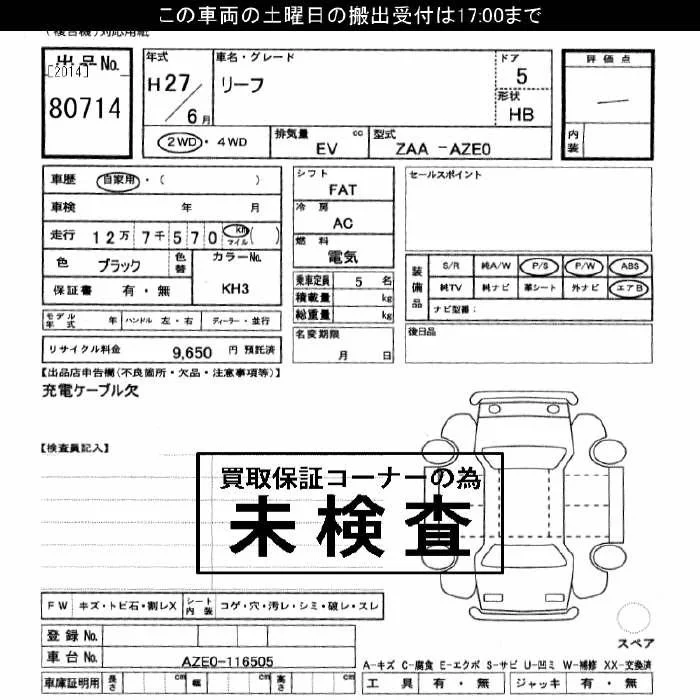 この車両の土曜日の搬出受付は17:00まで
(複合機)対応用紙
出品No.
[2014]
80714
年式
H27/6月
車名・グレード
リーフ
ドア
5
形状
HB
評価点
—
内装
2WD・4WD
排気量 cc
EV
型式
ZAA -AZE0
車歴 自家用・( )
車検 年 月
走行 12万7千570 km マイル ( )
色 ブラック 色替 カラーNo.
KH3
保証書 有・無
モデル年式 年 ハンドル 左・右 ディーラー・並行
リサイクル料金 9,650 円 預託済
シフト
FAT
冷房
AC
燃料
電気
乗車定員 5 名
積載量 kg
総重量 kg
名変期限
月 日
セールスポイント
装備品
S/R 純A/W P/S P/W ABS
純TV 純ナビ 革シート 外ナビ エアB
ナビ型番:
後日品
【出品店申告欄(不良箇所・欠品・注意事項等)】
充電ケーブル欠
【検査員記入】
買取保証コーナーの為
未検査
FW キズ・トビ石・割レX シート内装 コゲ・穴・汚レ・シミ・破レ・スレ
登録No.
車台No. AZE0-116505
車庫証明用 長さ cm 幅 cm 高さ cm
スペア
A-キズ C-腐食 E-エクボ S-サビ U-凹ミ W-補修 XX-交換済
工具 有・無 ジャッキ 有・無